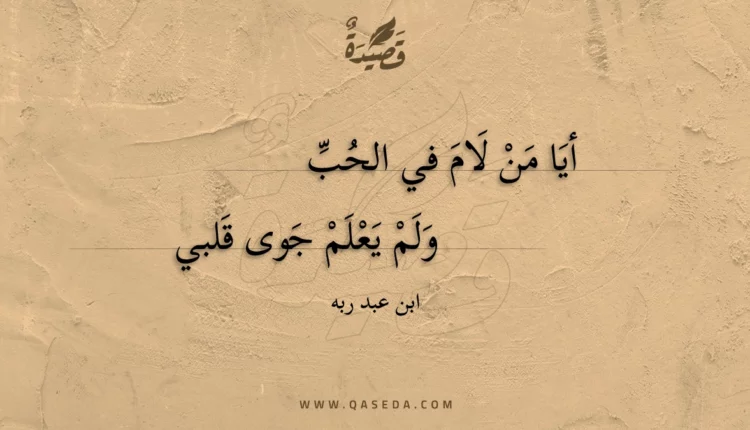 قَصِيْدَةٌ
أيَا مَنْ لَامَ في الحُبِّ
وَلَمْ يَعْلَمْ جَوى قَلبي
ابن عبد ربه
WWW.QASEDA.COM